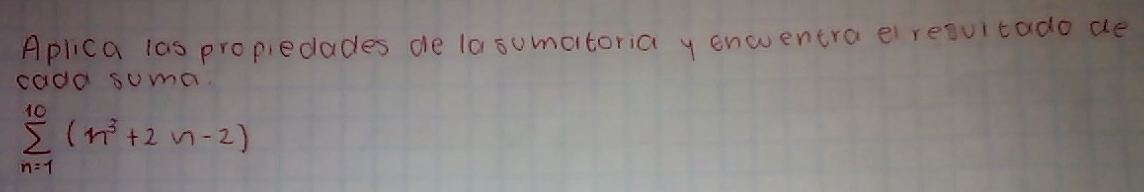 Aplica las propiedades de la sumatoria y encuentra el resultado de
cada suma.
10
∑ (n³ + 2n - 2)
n=1